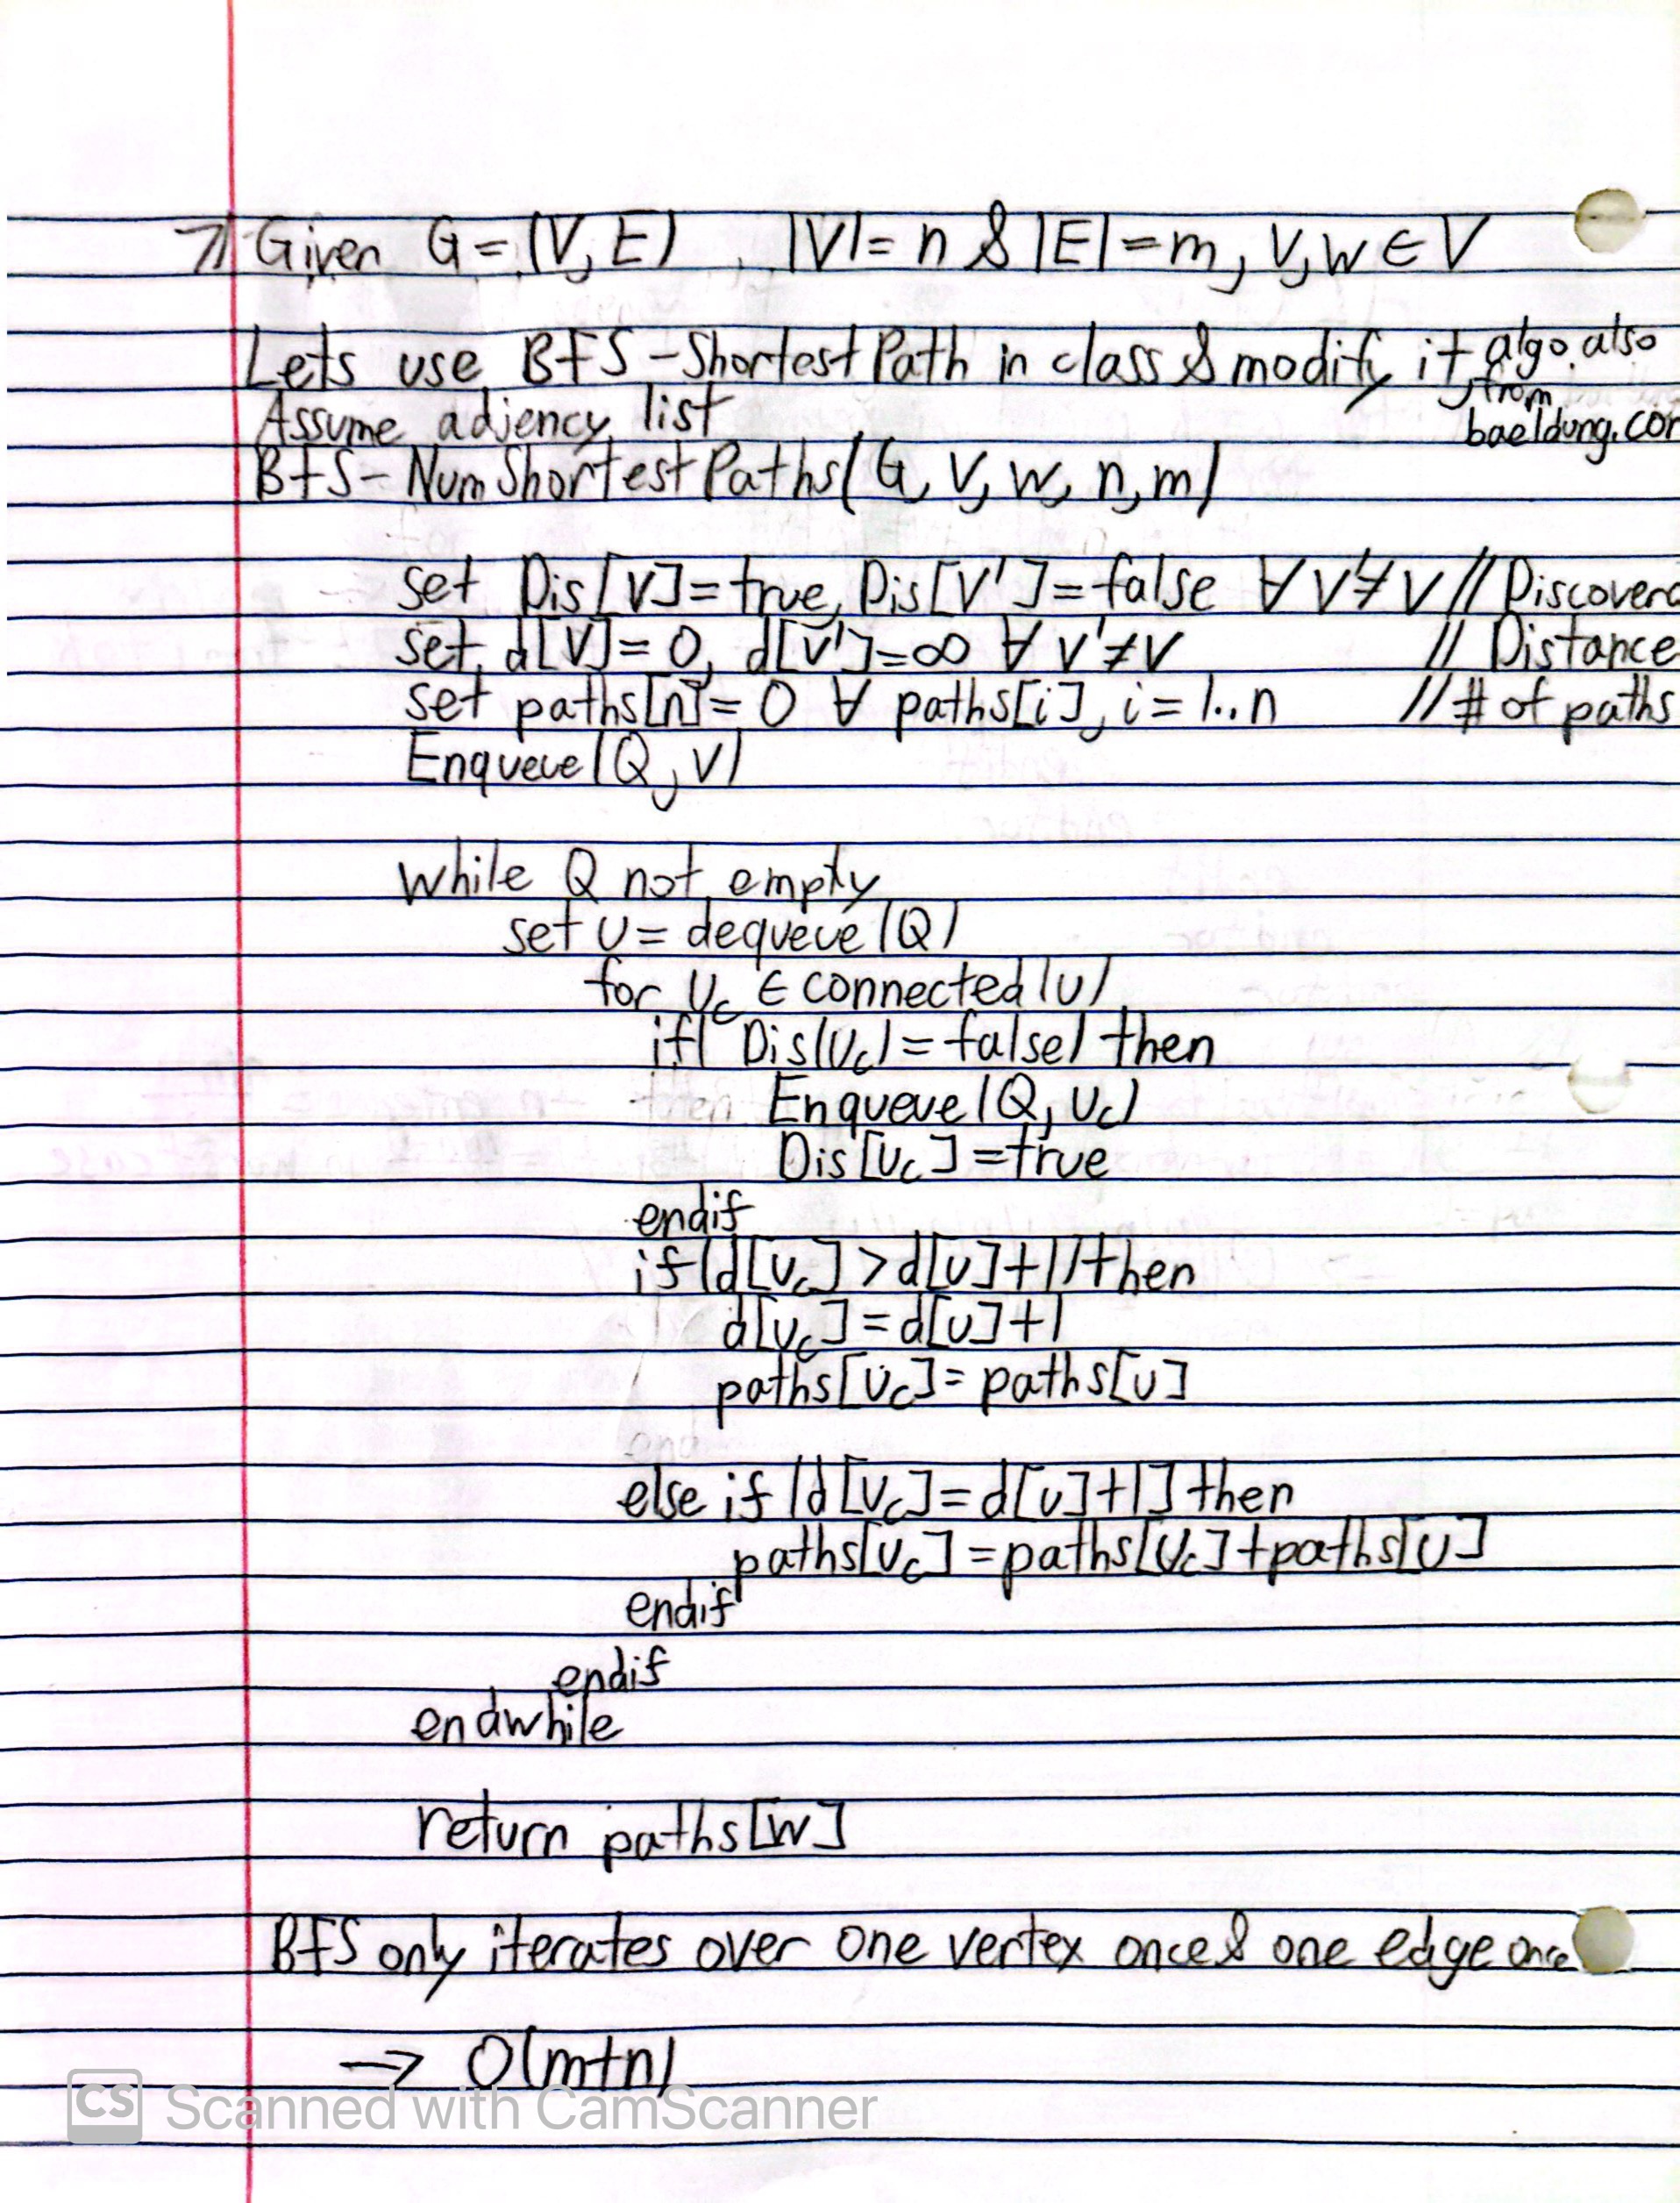 7) Given G=(V,E), |V|=n & |E|=m, v,w ∈ V
Lets use BFS-Shortest Path in class & modify it, algo. also
from
Assume adjency list
baeldung.com
BFS-NumShortestPaths(G, v, w, n, m)
set Dis[v]=true, Dis[v']=false ∀ v'≠v // Discovere
set d[v]=0, d[v']=∞ ∀ v'≠v // Distance
set paths[n]=0 ∀ paths[i], i=1..n // # of paths
Enqueue(Q, v)
while Q not empty
set u = dequeue(Q)
for uc ∈ connected(u)
if( Dis(uc)=false) then
Enqueue(Q, uc)
Dis[uc]=true
endif
if(d[uc]>d[u]+1) then
d[uc]=d[u]+1
paths[uc]=paths[u]
else if (d[uc]=d[u]+1] then
paths[uc]=paths[uc]+paths[u]
endif
endif
endwhile
return paths[w]
BFS only iterates over one vertex once & one edge once
→ O(m+n)
CS Scanned with CamScanner